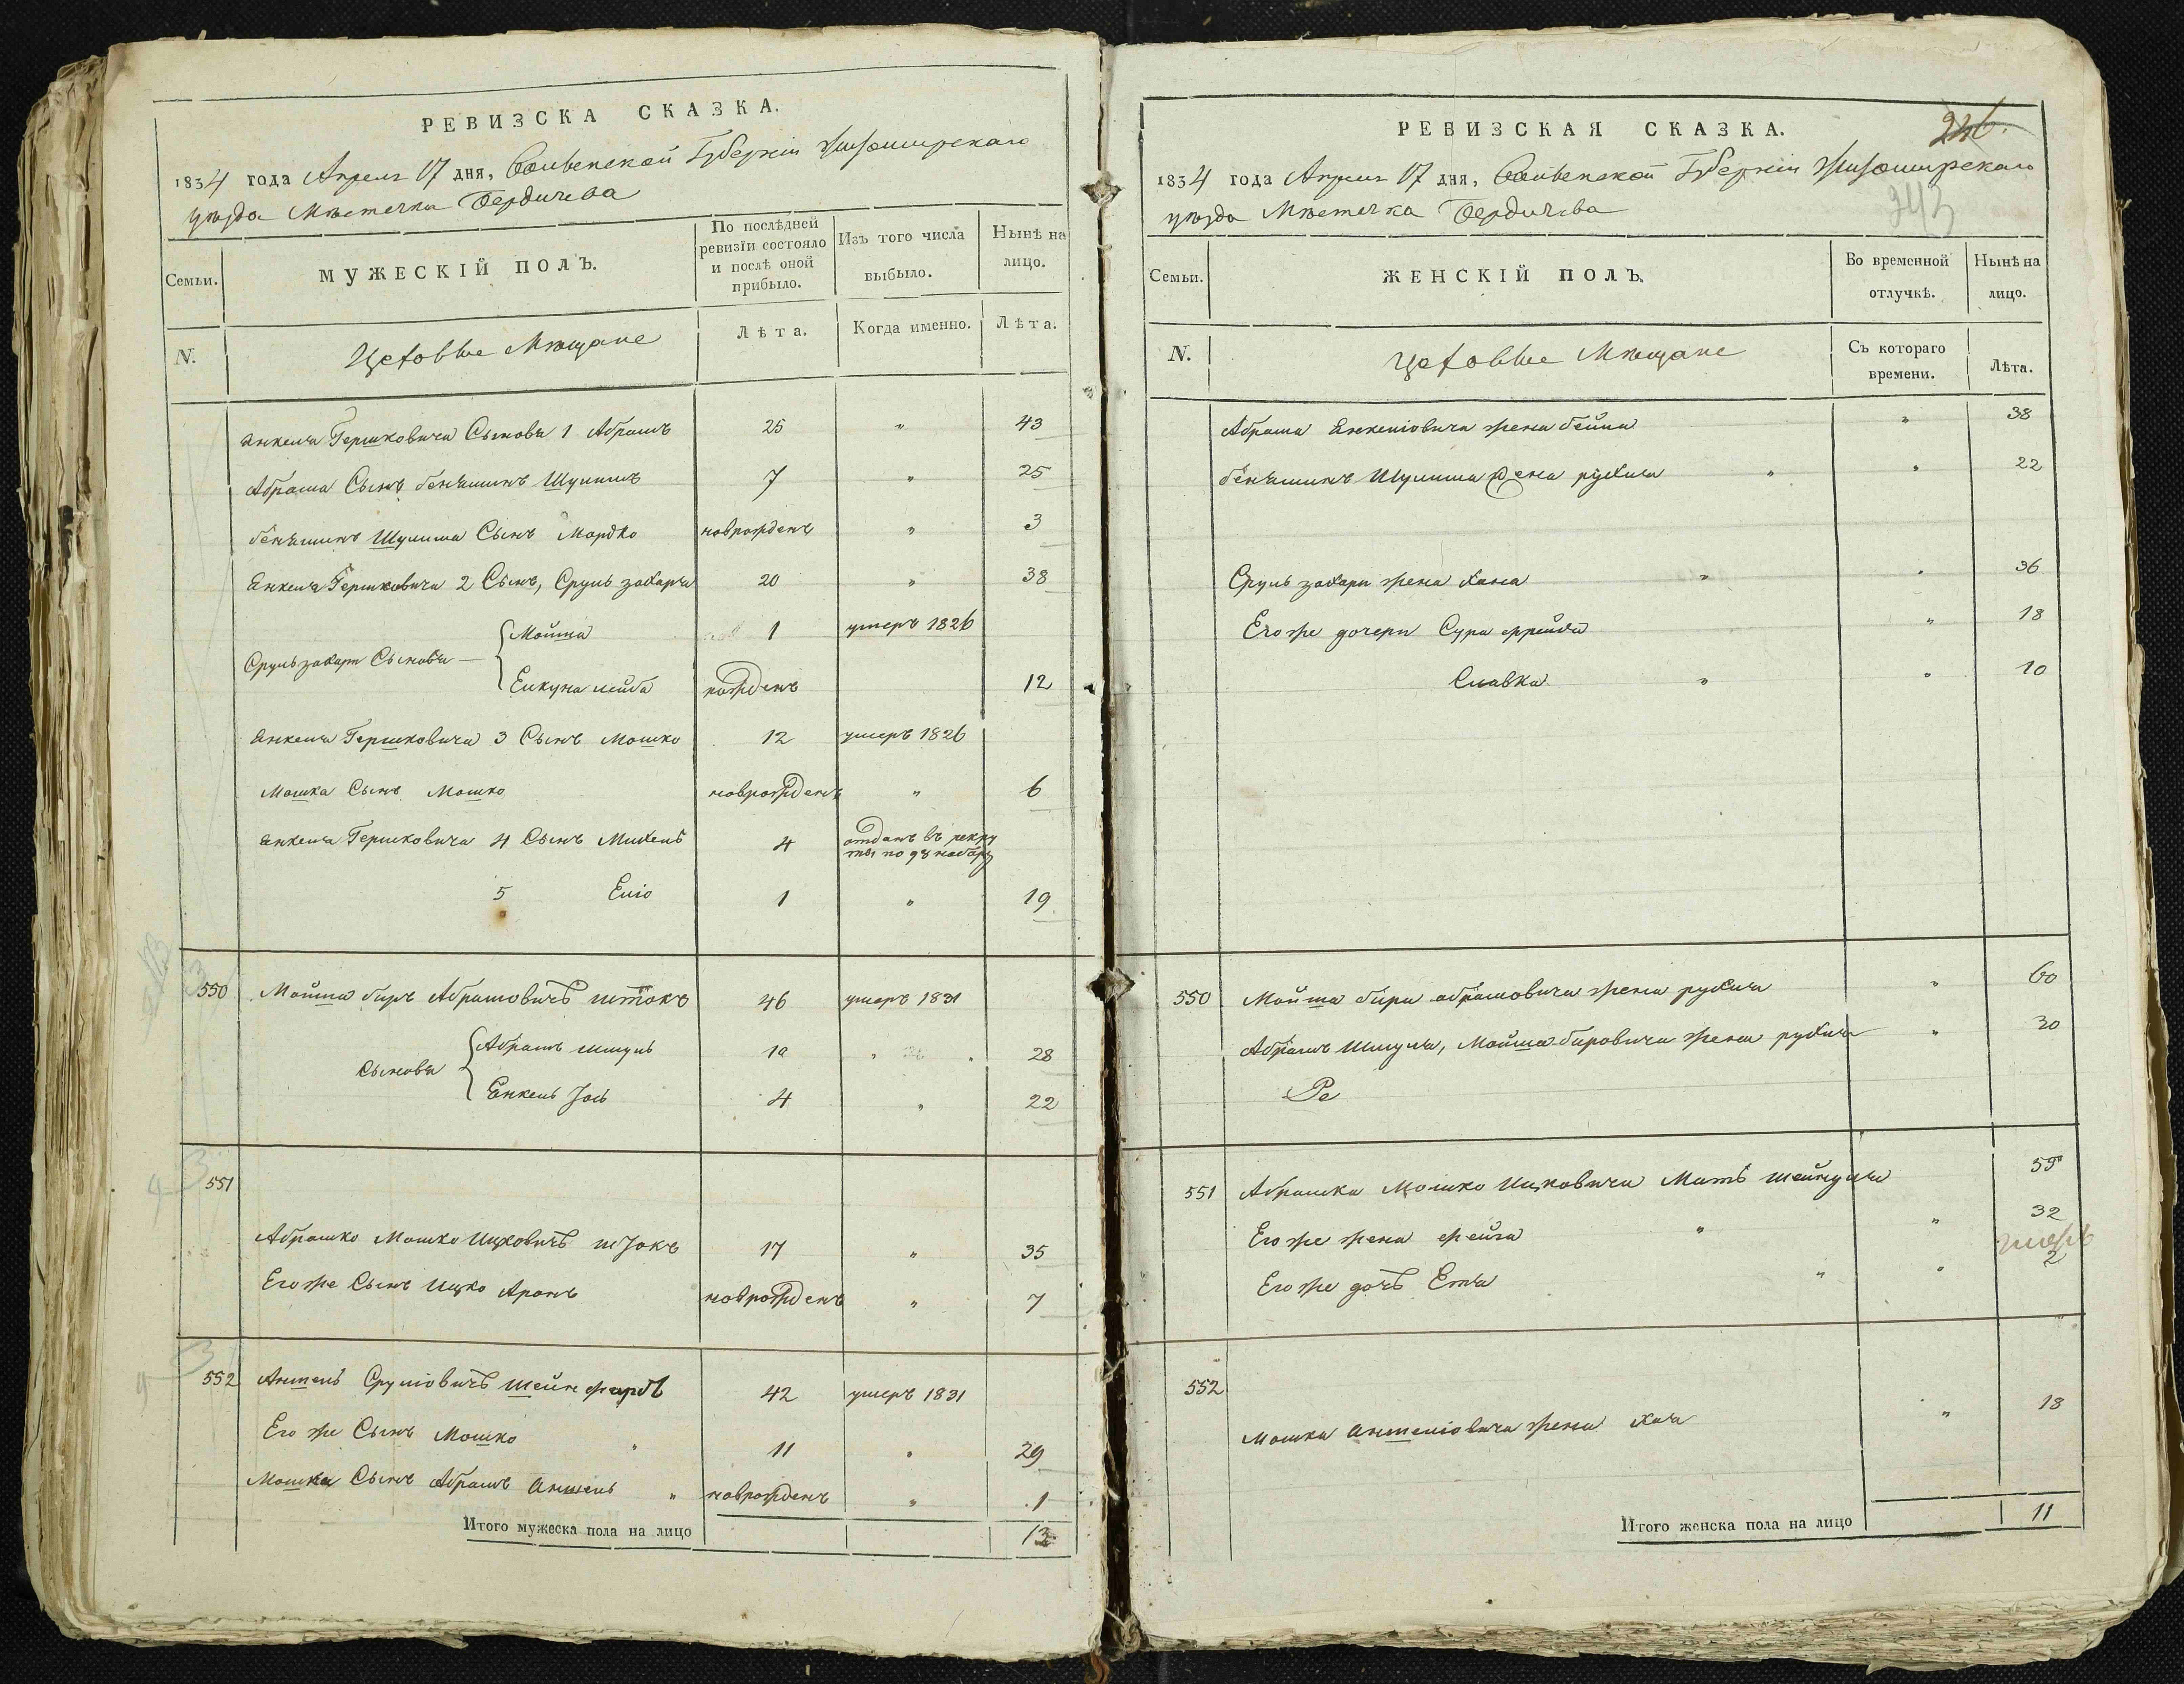 РЕВИЗСКА СКАЗКА.
1834 года Апреля 17 дня, Волынской Губернiи Житомирскаго
уѣзда Мѣстечка Бердичева
Семьи.
МУЖЕСКІЙ ПОЛЪ.
По послѣдней ревизіи состояло и послѣ оной прибыло.
Изъ того числа выбыло.
Нынѣ на лицо.
N.
Цеховые Мѣщане
Лѣта.
Когда именно.
Лѣта.
Янкеля Гершковича Сыновя 1 Абрамъ 25 " 43
Абрама Сынъ бенѣминъ Шулимъ 7 " 25
бенѣминъ Шулима Сынъ Мордко новрожденъ " 3
Енкеля Гершковича 2 Сынъ, Сруль захарѣ 20 " 38
Сруль захари Сыновя — Мойша 1 умеръ 1826
Елкуна лейба рожденъ 12
Янкеля Гершковича 3 Сынъ Мошко 12 умеръ 1826
Мошка Сынъ Мошко новрожденъ " 6
Янкеля Гершковича 4 Сынъ Михель 4 отданъ въ рекру
ты по 93 набору
5 Еліо 1 " 19
550 Мойша биръ Абрамовичъ штокъ 46 умеръ 1831
Сыновя Абрамъ шмуль 10 " " 28
Енкель Jось 4 " 22
551
Абрашко Мошко Ицковичъ штокъ 17 " 35
Его же Сынъ Ицко Аронъ новрожденъ " 7
552 Аншель Сруліовичъ Шейнфарбъ 42 умеръ 1831
Его же Сынъ Мошко " 11 " 29
Мошка Сынъ Абрамъ Аншель " новрожденъ " 1
Итого мужеска пола на лицо 13
РЕВИЗСКАЯ СКАЗКА.
243
1834 года Апреля 17 дня, Волынской Губернiи Житомирскаго
уѣзда Мѣстечка Бердичева
Семьи.
ЖЕНСКІЙ ПОЛЪ.
Во временной отлучкѣ.
Нынѣ на лицо.
N.
Цеховые Мѣщане
Съ котораго времени.
Лѣта.
Абрама Енкеліовича жена бейла " 38
бенѣминъ Шулима жена рухля " " 22
Сруль захари жена хана " " 36
Его же дочери Сура фрейда " 18
Славка " " 10
550 Мойша бира абрамовича жена рухля " 60
Абрамъ Шмуля, Мойша-бировича жена рухля " 30
Ре
551 Абрашка Мошко Ицковича Мать шейндля 55
Его же жена фейга " " 32
умеръ
Его же дочь Етя " " 2
552
Мошка Аншеліовича жена хая " 18
Итого женска пола на лицо 11